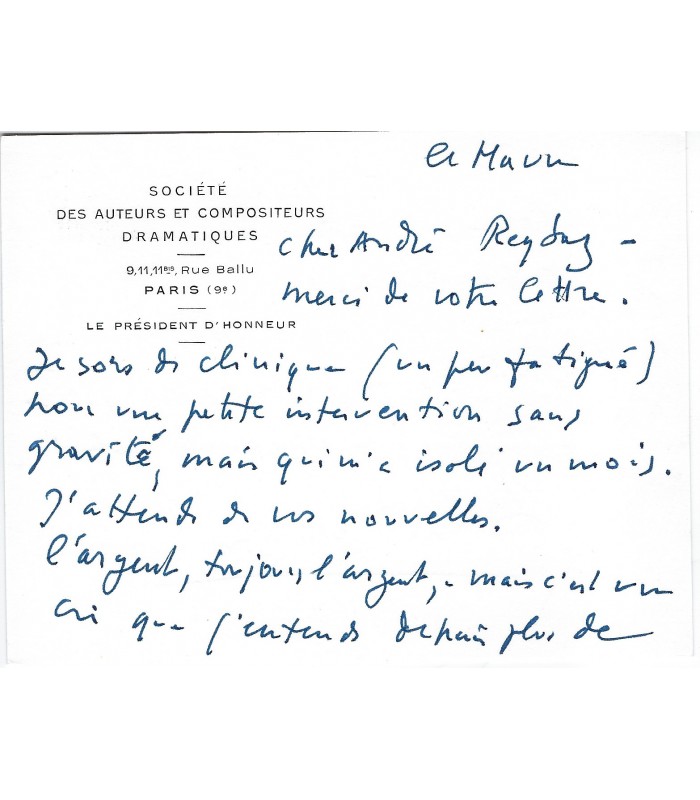 21 Mars
SOCIÉTÉ
DES AUTEURS ET COMPOSITEURS
DRAMATIQUES
9,11,11BIS, Rue Ballu
PARIS (9e)
LE PRÉSIDENT D'HONNEUR
Cher André –
merci de votre lettre.
Je sors de clinique (un peu fatigué)
pour une petite intervention sans
gravité, mais qui m'a isolé un mois.
J'attends de vos nouvelles.
L'argent, toujours l'argent, – mais c'est un
cri que j'entends depuis plus de